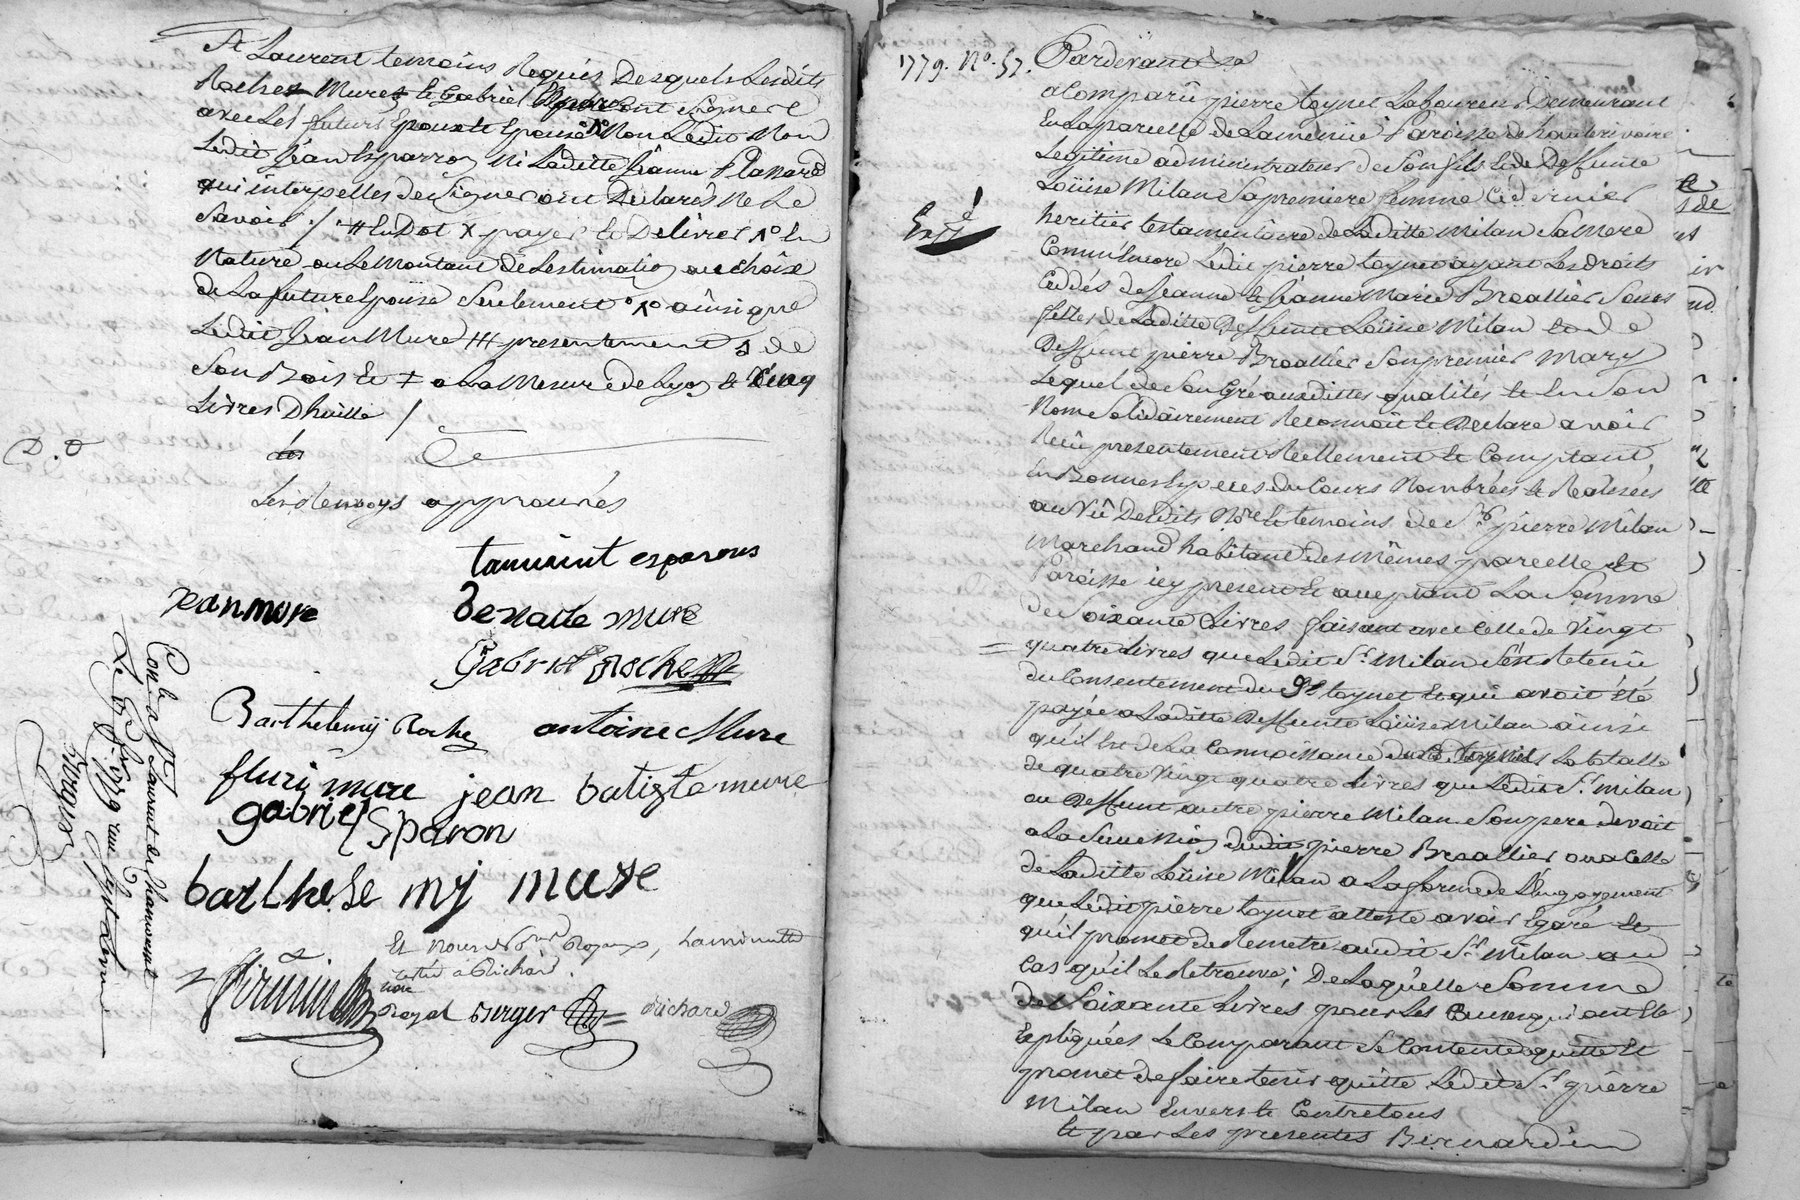 St Laurent temoins Requis Desquels Lesdits
Roche Mure et Gabriel Esparon ont signé
avec Lés futurs Epoux Non Ledit
Ledit Jean Esparron Ni Laditte Jeanne Planard
qui interpellés de Signer ont Declarés Ne Le
Savoir / # en Dot x payer et Delivrer x° En
Nature ou Le Montant de Lestimation au choix
de La future Epouse Seulement x° ainsi que
Ledit Jean Mure /// presentement de
Son Bois et ‡ a La Mesure de Lyon et Cinq
Livres Dhuille /
D. O
Les Renvoys approuvés
tamient esparons
Jean mure
Benaite mure
Gabriel Roche
Barthelemy Roche antoine Mure
fluri mure jean batiste mure
gabriel Sparon
barthelemy mure
Richard
Royet Berger Richard
Con.le a St Laurent de Chamousset
1779. No. 57. Pardevant
a Comparû pierre toynet Laboureur Demeurant
En La parcelle de Lamenue Paroisse de hauterivoire
Legitime administrateur de Son fils et de Deffunte
Loüise Milan Sa premiere femme Ce dernier
Expé
heritier testamentaire de Laditte Milan Sa Mere
Comm'Encore Ledit pierre toynet ayant Les Droits
Cedés de Jeanne et Jeanne Marie Broallier Sœurs
filles de Laditte Deffunte Loüise Milan et de
Deffunt pierre Broallier Son premier Mary
Lequel de Son Gré auxdittes qualités et En Son
Nom Solidairement Reconnoit et Declare avoir
Reçû presentement Reellement et Comptant
En Bonnes Especes du Cours Nombrées et Realisées
au Vû Desdits Nore et temoins de Sr pierre Milan
Marchand habitant des Mêmes parcelle et
Paroisse icy present et acceptant La Somme
de Soixante Livres faisant avec Celle de Vingt
quatre Livres que Ledit Sr. Milan S'est Retenüe
du Consentement du Sr toynet Et qui avoit été
payée a Laditte Deffunte Loüise Milan ainsi
qu'il Est de La Connoissance dudit toynet La totalle
de quatre Vingt quatre Livres que Ledit Sr. Milan
ou Deffunt autre pierre Milan Son pere devoit
a La Succession dudit pierre Broallier ou a Celle
de Laditte Loüise Milan a La forme de L'Engagement
que Ledit pierre toynet atteste avoir Egaré et
qu'il promet de Remettre audit Sr. Milan au
Cas qu'il Le Retrouve; De Laquelle Somme
de Soixante Livres pour Les Causes qui ont Eté
Expliquées Le Comparant Se Contente quitte Et
promet de faire tenir quitte Ledit Sr. pierre
Milan Envers et Contre tous
et par Les presentes Bernardin